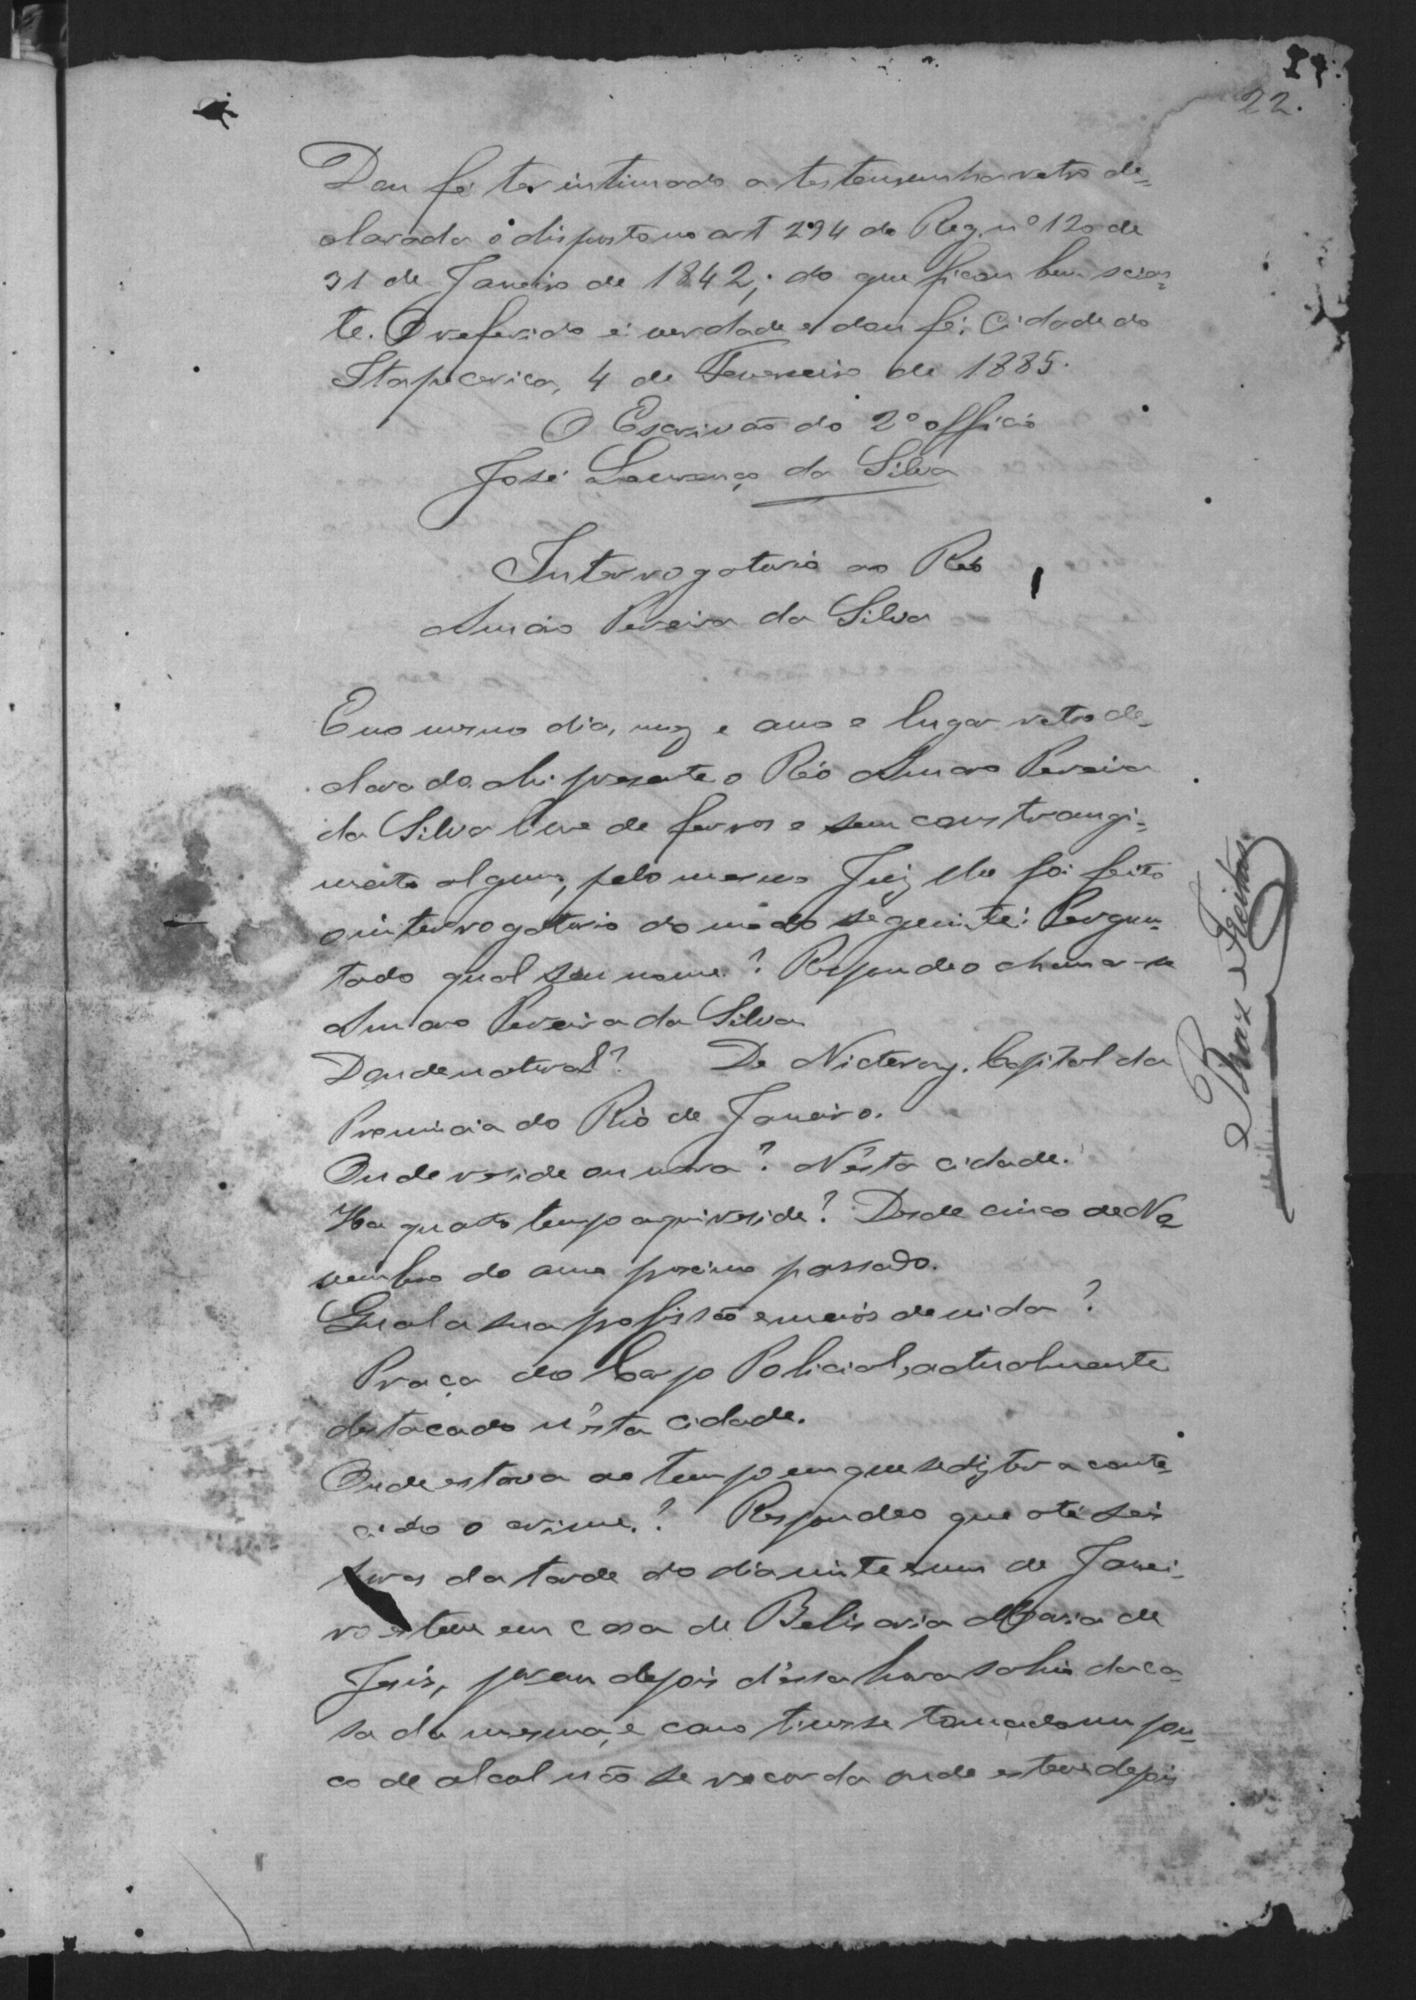 27.
22.
Dou fé ter intimado a testemunha retro de-
clarada o disposto no art 294 do Reg. nº 120 de
31 de Janeiro de 1842; do que ficou bem scien-
te. O referido é verdade e dou fé. Cidade do
Itapecerica, 4 de Fevereiro de 1885.
O Escrivão do 2º officio
José Lourenço da Silva
Interrogatorio ao Réo
Amaro Pereira da Silva
E no mesmo dia, mez e anno e lugar retro de-
clarado ahi presente o Réo Amaro Pereira
da Silva livre de ferros e sem constrangi-
mento algum, pelo mesmo Juiz lhe foi feito
o interrogatorio do modo seguinte: Pergun-
tado qual seu nome? Respondeo chamar-se
Amaro Pereira da Silva
Donde natural? De Nicteroy, Capital da
Provincia do Rio de Janeiro.
Onde reside ou mora? N'esta cidade.
Ha quanto tempo aqui reside? Desde cinco de No
vembro do anno proximo passado.
Qual a sua profissão e meios de vida?
Praça do Corpo Policial, actualmente
destacado n'esta cidade.
Onde estava ao tempo em que se diz ter aconte-
cido o crime? Respondeo que até seis
horas da tarde do dia vinte e um de Janei-
ro esteve em casa de Belisaria Maria de
Jesus, porem depois d'essa hora sahio da ca-
sa da mesma, e como tivesse tomado um pou-
co de alcol não se recorda onde esteve depois
Braz e Freitas